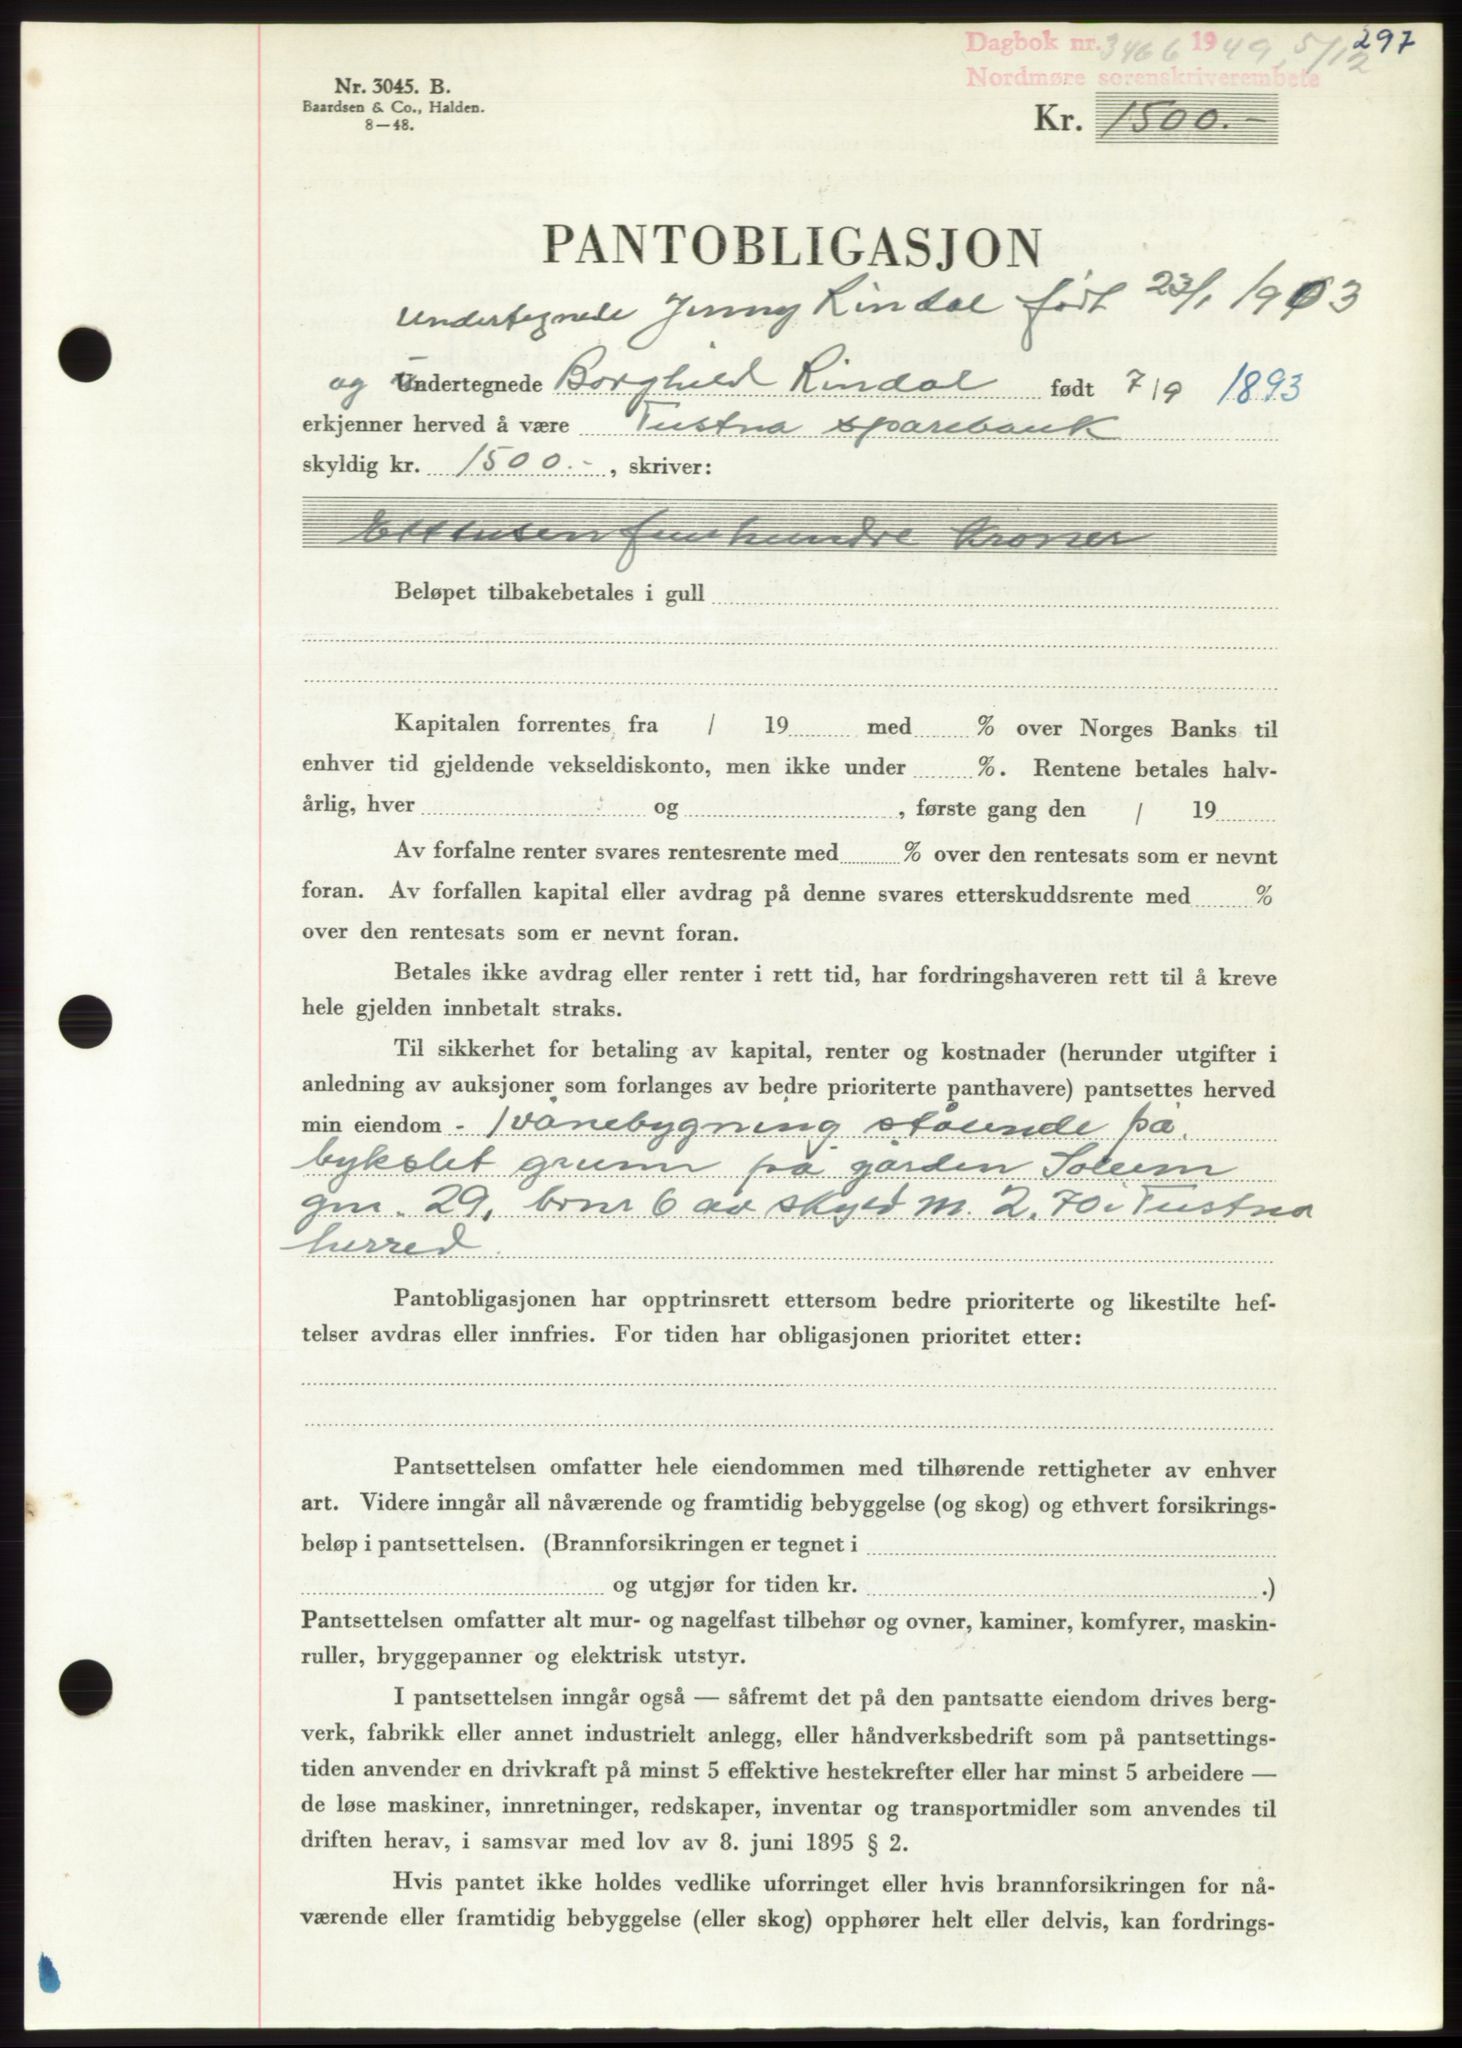 297
Dagbok nr. 3466 1949, 5/12
Nordmøre sorenskriverembete
Nr. 3045. B.
Baardsen & Co., Halden.
8—48.
Kr. 1500.-
PANTOBLIGASJON
Undertegnede Jenny Rindal født 23/1 1903
og Undertegnede Borghild Rindal født 7/9 1893
erkjenner herved å være Tustna sparebank
skyldig kr. 1500.-, skriver:
Ettusenfemhundre kroner
Beløpet tilbakebetales i gull
Kapitalen forrentes fra / 19 med % over Norges Banks til
enhver tid gjeldende vekseldiskonto, men ikke under %. Rentene betales halv-
årlig, hver og , første gang den / 19
Av forfalne renter svares rentesrente med % over den rentesats som er nevnt
foran. Av forfallen kapital eller avdrag på denne svares etterskuddsrente med %
over den rentesats som er nevnt foran.
Betales ikke avdrag eller renter i rett tid, har fordringshaveren rett til å kreve
hele gjelden innbetalt straks.
Til sikkerhet for betaling av kapital, renter og kostnader (herunder utgifter i
anledning av auksjoner som forlanges av bedre prioriterte panthavere) pantsettes herved
min eiendom - 1 vånebygning stående på
bykslet grunn på garden Soleim
gnr. 29, brnr 6 av skyld m. 2.70 i Tustna
herred
Pantobligasjonen har opptrinsrett ettersom bedre prioriterte og likestilte hef-
telser avdras eller innfries. For tiden har obligasjonen prioritet etter:
Pantsettelsen omfatter hele eiendommen med tilhørende rettigheter av enhver
art. Videre inngår all nåværende og framtidig bebyggelse (og skog) og ethvert forsikrings-
beløp i pantsettelsen. (Brannforsikringen er tegnet i
og utgjør for tiden kr. .)
Pantsettelsen omfatter alt mur- og nagelfast tilbehør og ovner, kaminer, komfyrer, maskin-
ruller, bryggepanner og elektrisk utstyr.
I pantsettelsen inngår også — såfremt det på den pantsatte eiendom drives berg-
verk, fabrikk eller annet industrielt anlegg, eller håndverksbedrift som på pantsettings-
tiden anvender en drivkraft på minst 5 effektive hestekrefter eller har minst 5 arbeidere —
de løse maskiner, innretninger, redskaper, inventar og transportmidler som anvendes til
driften herav, i samsvar med lov av 8. juni 1895 § 2.
Hvis pantet ikke holdes vedlike uforringet eller hvis brannforsikringen for nå-
værende eller framtidig bebyggelse (eller skog) opphører helt eller delvis, kan fordrings-